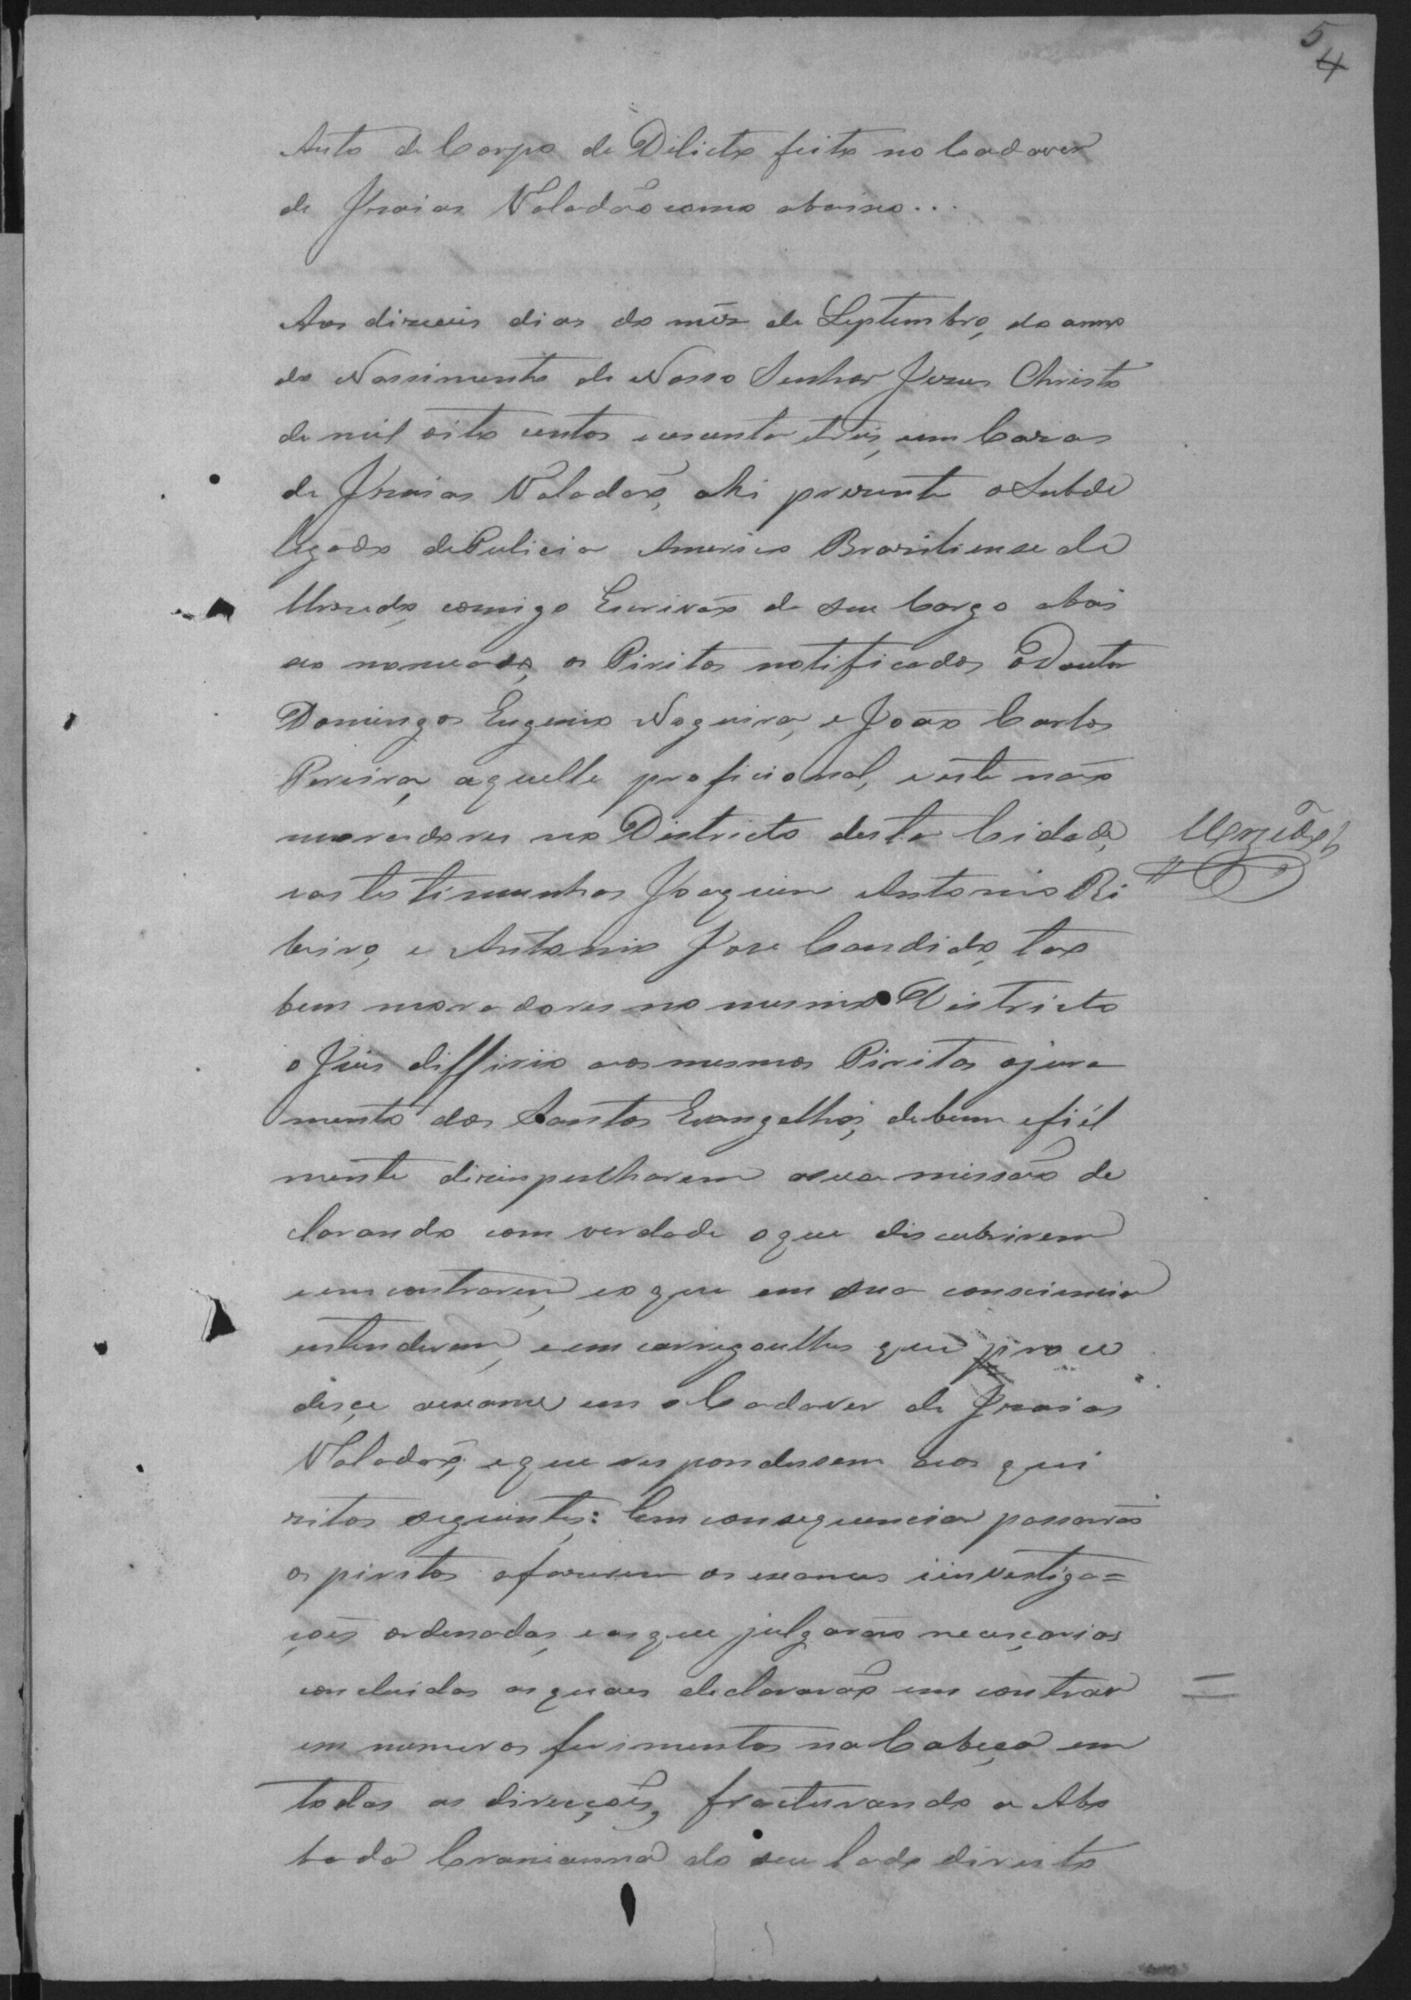 5
4
Auto de Corpo de Dilicto feito no Cadaver
de Izaias Valadão como abaixo...
Aos dizeceis dias do mêz de Septembro, do anno
do Nassimento de Nosso Senhor Jezus Christo
de mil oito centos e secenta e dois, em Cazas
de Izaias Valadaõ, ahi prezente o Subde
legado de Pulicia Americo Braziliense de
comigo Escrivaõ de seu Cargo abai
xo nomeado, os Piritos notificados o Doutor
Domingos Eugenio Nogueira, e João Carlos
Pereira, aquelle proficional, e este naõ
moradores no Districto desta Cidade,
e as testimunhas Joaquim Antonio Ri
beiro, e Antonio Jose Candido, tao
bem moradores no mesmo Districto
o Juis diffirio aos mesmos Piritos o jura
mento dos Santos Evangelhos, de bem e fiél
mente dizimpenharem a sua missaõ de
clarando com verdade o que discubrirem
e emcontrarem, e o que em sua consciencia
entenderem, e emcarregoulhes que proce
disçe a exame em o Cadaver de Izaias
Valadaõ, e que respondesem aos qui
zitos seguintes: Em consequencia passaraõ
os piritos a fazerem os exames i investiga=
çoẽs ordenadas, e as que julgaraõ necesçarias
concluidas as quaes declararaõ em contrar
em numeros ferimentos na Cabeça em
todas as direcçoẽs, fracturando a Abo
bada Craneanna do seu lado direito